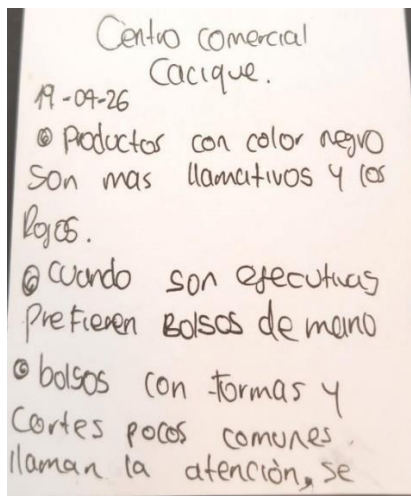 Centro comercial
Cacique.
19-04-26
Productos con color negro
son mas llamativos y los
Rojos.
Cuando son ejecutivas
Prefieren Bolsos de mano
bolsos con formas y
Cortes pocos comunes.
llaman la atención, se